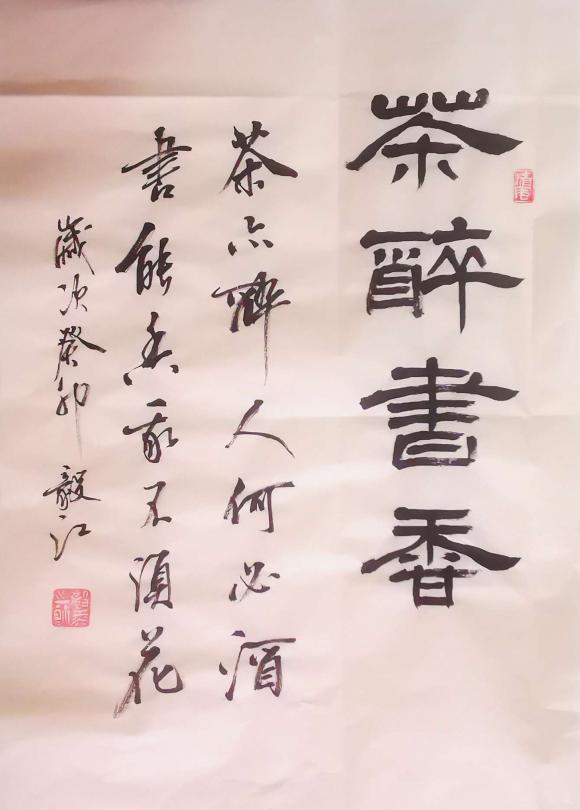 茶醉書香
茶亦醉人何必酒
書能香我不須花
歲次癸卯 毅江